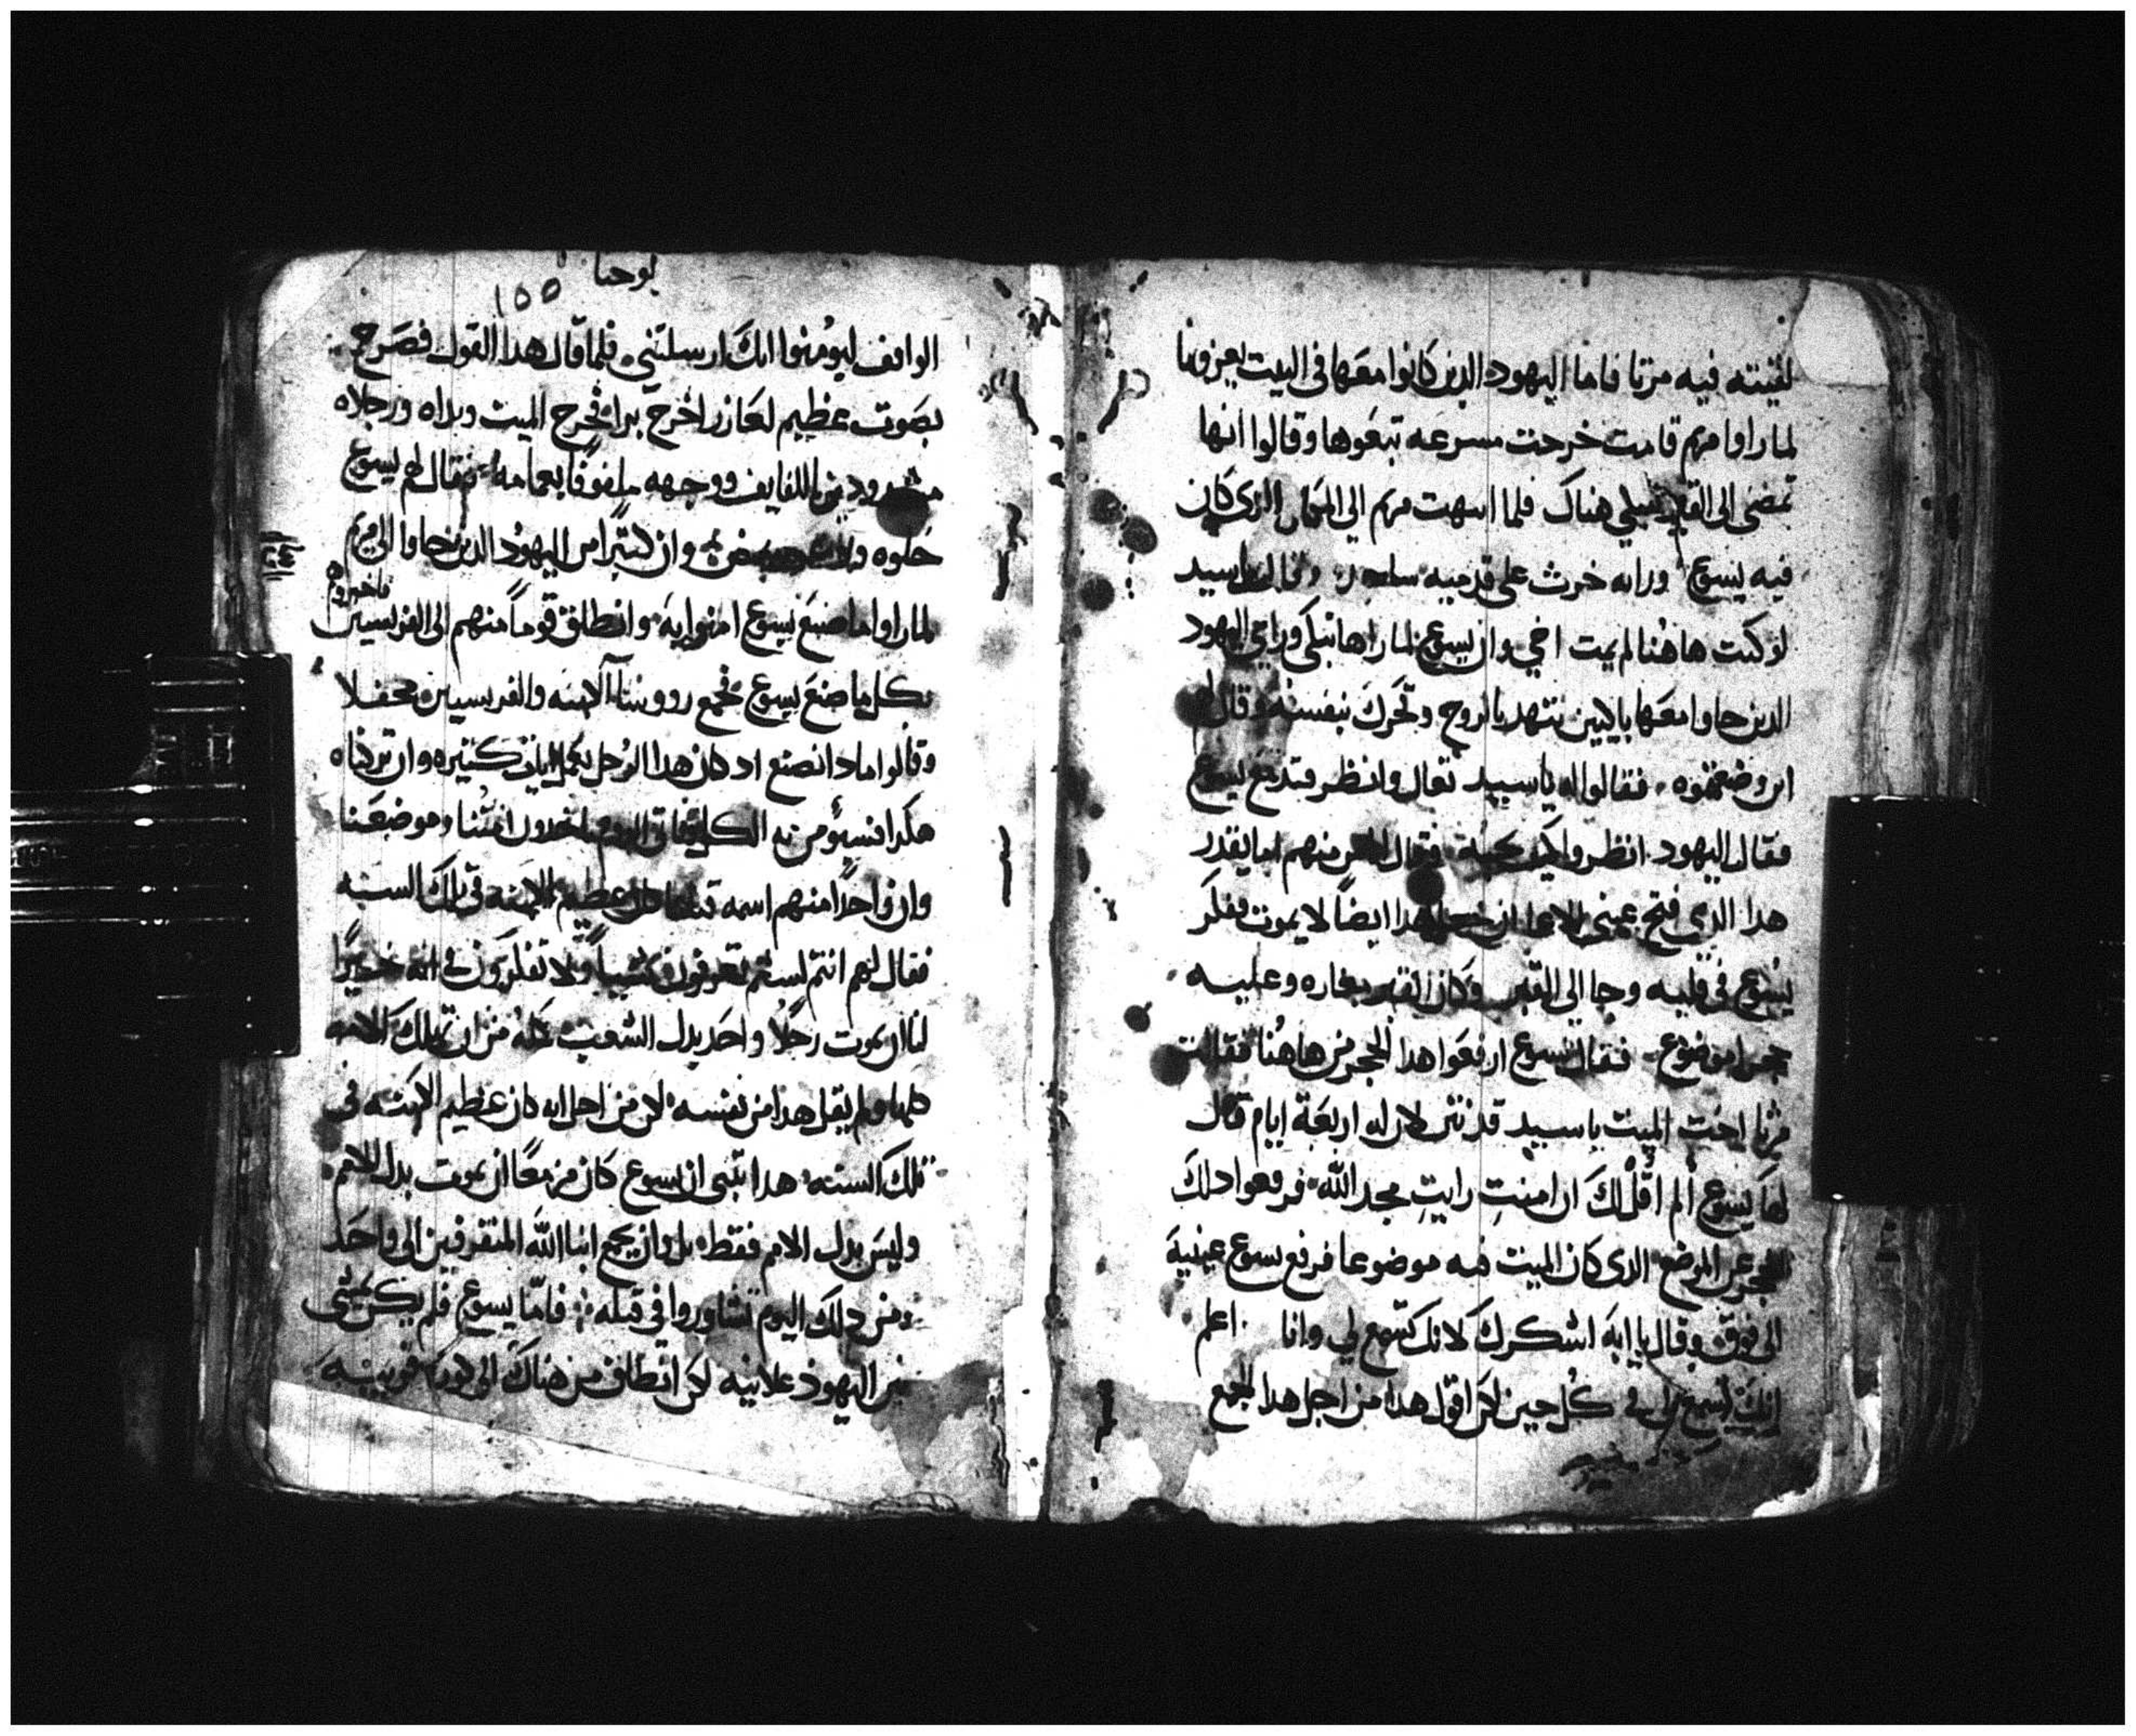 لقيته فيه مرتا فاما اليهود الدين كانوا معها فى البيت يعزونها
لما راوا مريم قامت خرجت مسرعه تبعوها وقالوا انها
تمضى الى القبر تبكي هناك فلما انتهت مريم الي المكان الدى كان
فيه يسوع وراته خرت على قدميه وقالت ياسيد
لو كنت هاهنا لم يمت اخي وان يسوع لما راها تبكي وراي اليهود
الدين جاوا معها باكيين تنهد بالروح وتحرك بنفسه وقال
اين وضعتموه فقالوا له ياسيد تعال وانظر فتدمع يسوع
فقال اليهود انظروا كيف يحبه فقال منهم اما يقدر
هدا الدي فتح عيني الاعما ان هدا ايضاً لا يموت ففكر
يسوع في قلبه وجا الي القبر وكان القبر مغاره وعليه
حجرا موضوع فقال يسوع ارفعوا هدا الحجر من هاهنا فقالت
مرتا اخت الميت ياسيد قد نتن لان له اربعة ايام قال
لها يسوع ألم اقُلْ لك ان امنتِ رايتِ مجد الله فرفعوا دلك
الحجر عن الموضع الدى كان الميت فيه موضوعا فرفع يسوع عينيه
الى فوق وقال ياابة اشكرك لانك تسمع لي وانا اعلم
انك تسمع لي في كل حين لكن اقول هدا من اجل هدا الجمع
يوحنا
١٥٥
الواقف ليومنوا انك ارسلتني فلما قال هدا القول فصرخ
بصوت عظيم لعازر اخرج برا فخرج الميت ويداه ورجلاه
مشدودين باللفايف ووجهه ملفوفا بعمامه فقال لهم يسوع
حلوه وان كثيراً من اليهود الدين جاوا الى مريم
فاخبروهم
لما راوا ما صنع يسوع امنوا به وانطلق قوماً منهم الى الفريسيين
بكل ما صنع يسوع فجمع رووسا الكهنه والفريسيين محفلا
وقالوا مادا نصنع اد كان هدا الرجل يعمل ايات كثيره وان تركناه
هكدا فسيومن به الكل فياتى الروم ياخدون امتنا وموضعنا
وان واحداً منهم اسمه قيافا كان عظيم الكهنه في تلك السنه
فقال لهم انتم لستم تعرفون شيياً ولا تفكرون في انه خيراً
لنا ان يموت رجلاً واحد بدل الشعب كله من ان تهلك الامه
كلها ولم يقل هدا من نفسه لكن من اجل انه كان عظيم الكهنه في
تلك السنه هدا تنبى ان يسوع كان مزمعاً ان يموت بدل الامم
وليس بدل الامم فقط بل وان يجمع ابنا الله المتفرقين الى واحد
ومن دلك اليوم تشاوروا في قتله فامّا يسوع فلم يكن يمشى
بين اليهود علانيه لكن انطلق من هناك الى كورة قريبه